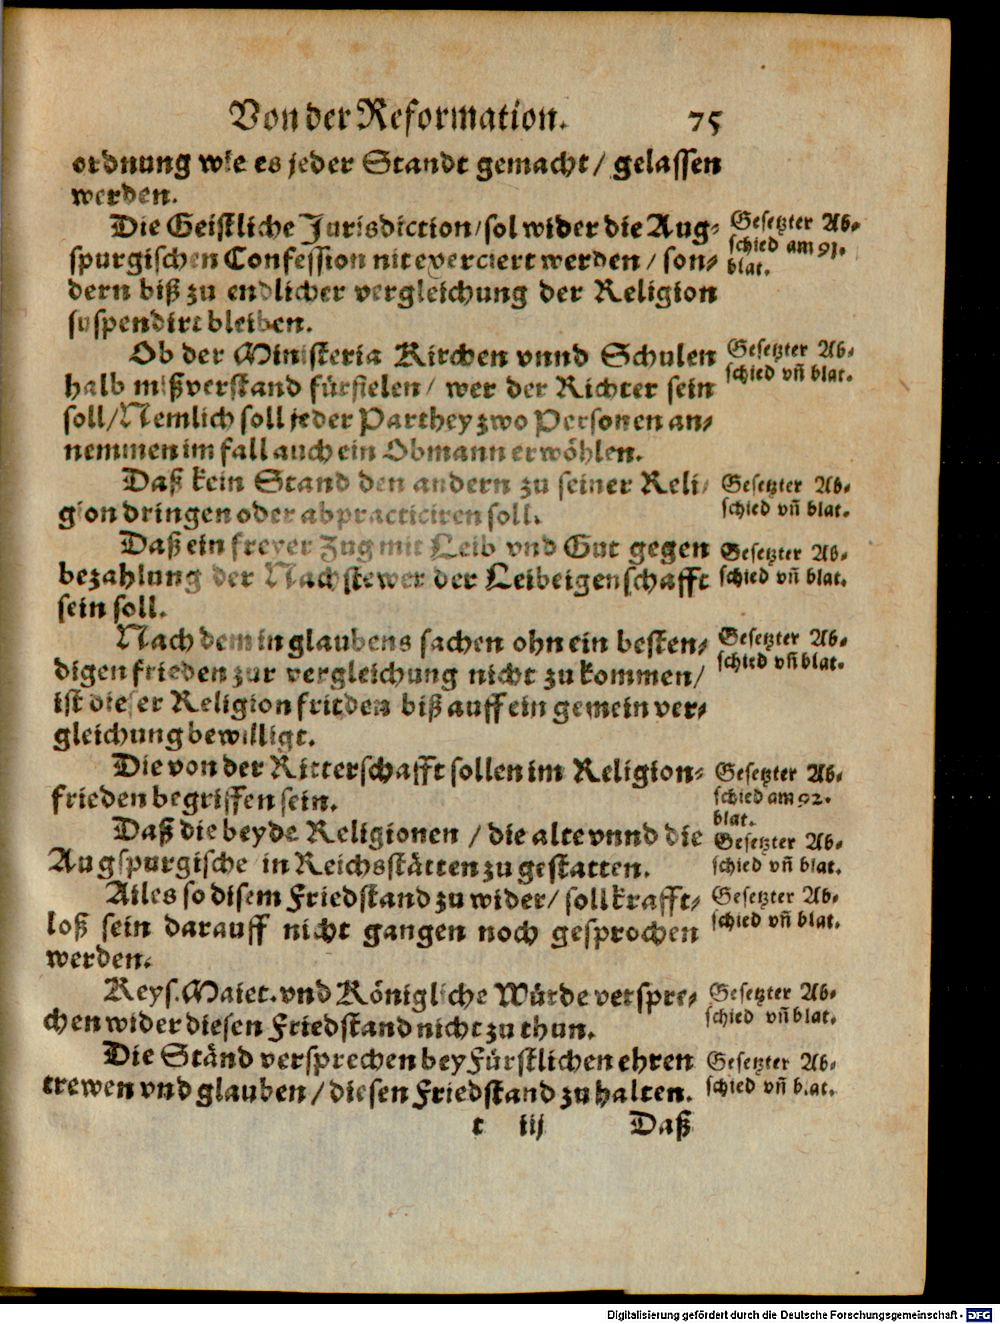 Von der Reformation. 75
ordnung wie es jeder Standt gemacht / gelassen
werden.
Die Geistliche Jurisdiction / sol wider die Aug-
spurgischen Confession nit exerciert werden / son-
dern biß zu endlicher vergleichung der Religion
suspendirt bleiben.
Gesetzter Ab-
schied am 91.
blat.
Ob der Ministeria Kirchen vnnd Schulen
halb mißverstand fürfielen / wer der Richter sein
soll / Nemlich soll jeder Parthey zwo Personen an-
nemmen im fall auch ein Obmann erwöhlen.
Gesetzter Ab-
schied vñ blat.
Daß kein Stand den andern zu seiner Reli-
gion dringen oder abpracticiren soll.
Gesetzter Ab-
schied vñ blat.
Daß ein freyer Zug mit Leib vnd Gut gegen
bezahlung der Nachstewer der Leibeigenschafft
sein soll.
Gesetzter Ab-
schied vñ blat.
Nach dem in glaubens sachen ohn ein besten-
digen frieden zur vergleichung nicht zu kommen /
ist dieser Religion frieden biß auff ein gemein ver-
gleichung bewilligt.
Gesetzter Ab-
schied vñ blat.
Die von der Ritterschafft sollen im Religion-
frieden begriffen sein.
Gesetzter Ab-
schied am 92.
blat.
Daß die beyde Religionen / die alte vnnd die
Augspurgische in Reichsstätten zu gestatten.
Gesetzter Ab-
schied vñ blat.
Alles so disem Friedstand zu wider / soll krafft-
loß sein darauff nicht gangen noch gesprochen
werden.
Gesetzter Ab-
schied vñ blat.
Keys. Maiet. vnd Königliche Würde verspre-
chen wider diesen Friedstand nicht zu thun.
Gesetzter Ab-
schied vñ blat.
Die Ständ versprechen bey Fürstlichen ehren
trewen vnd glauben / diesen Friedstand zu halten.
Gesetzter Ab-
schied vñ blat.
t iij Daß
Digitalisierung gefördert durch die Deutsche Forschungsgemeinschaft - DFG